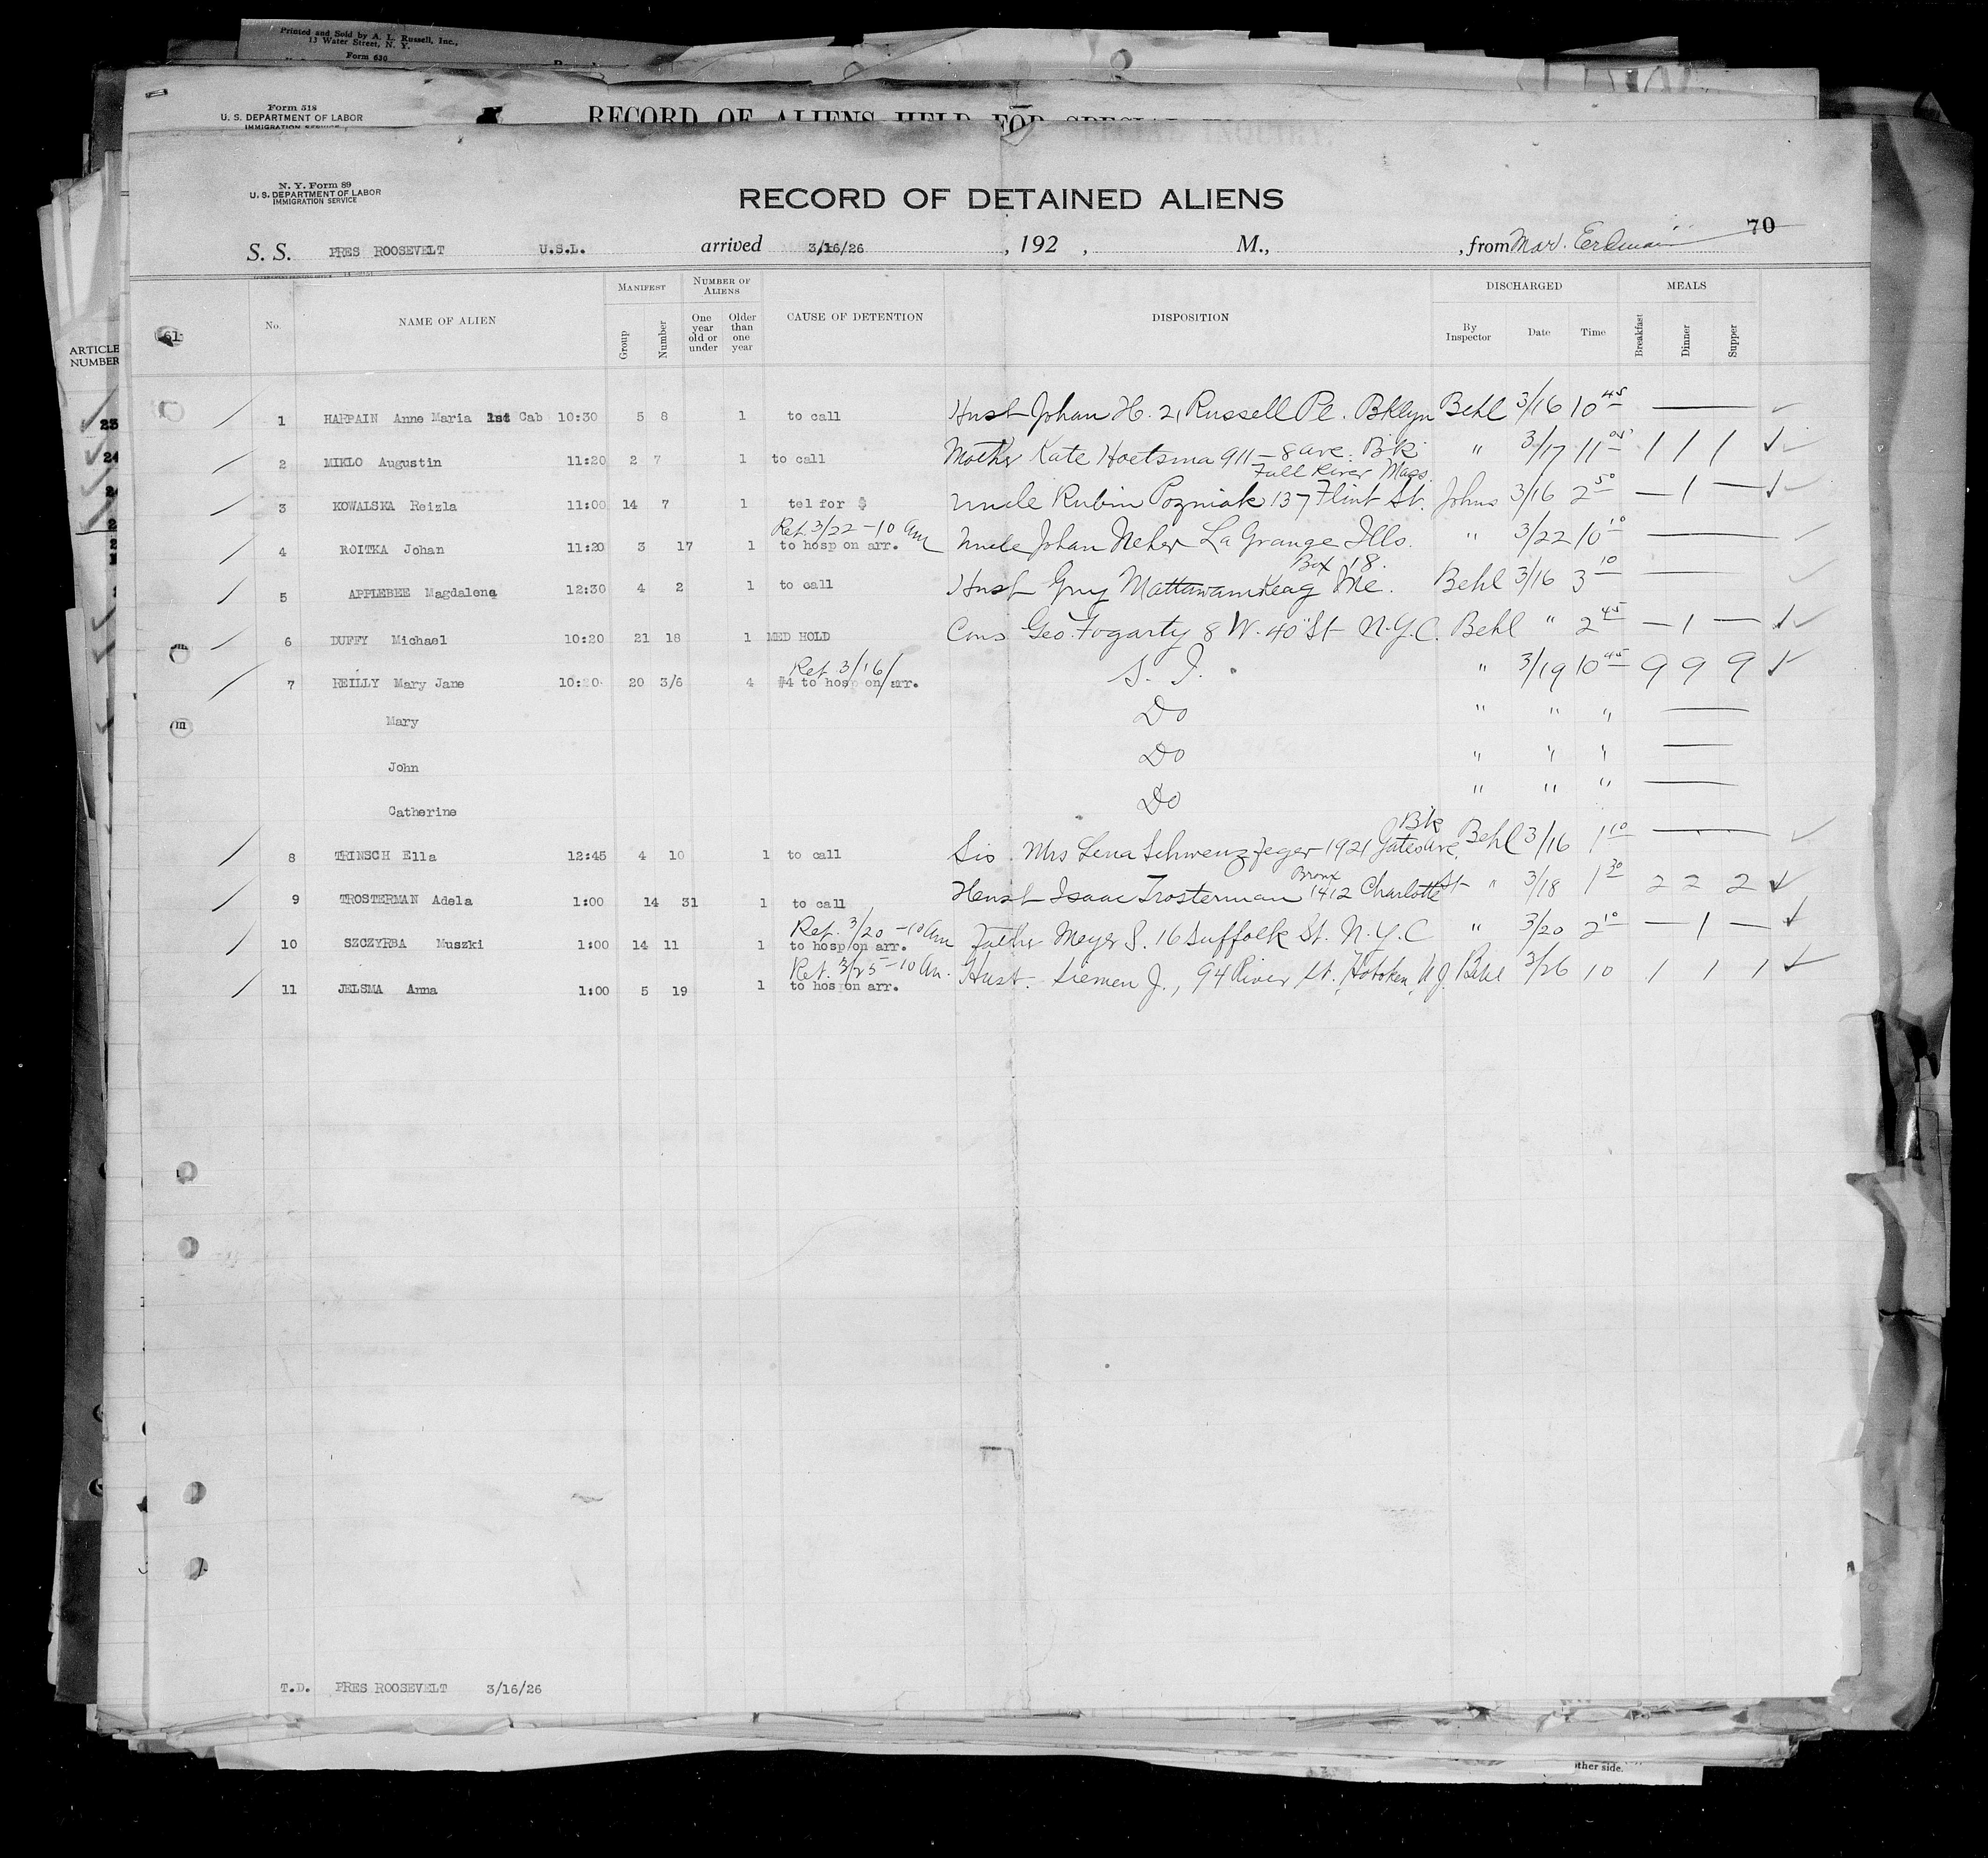 Printed and Sold by A. L. Russell, Inc.,
13 Water Street, N. Y.
Form 630
Form 518
U. S. DEPARTMENT OF LABOR
IMMIGRATION SERVICE
RECORD OF ALIENS HELD FOR SPECIAL INQUIRY.
N. Y. Form 89
U. S. DEPARTMENT OF LABOR
IMMIGRATION SERVICE
RECORD OF DETAINED ALIENS
70
S. S. PRES ROOSEVELT U.S.L. arrived 3/16/26, 192 , M., , from
ARTICLE NUMBER
No. NAME OF ALIEN MANIFEST Group Number NUMBER OF ALIENS One year old or under Older than one year CAUSE OF DETENTION DISPOSITION DISCHARGED By Inspector Date Time MEALS Breakfast Dinner Supper
1 HARPAIN Anne Maria 1st Cab 10:30 5 8 1 to call Husb Johan H. 21 Russell Pl. Bklyn Behl 3/16 10 45 —
2 MIKLO Augustin 11:20 2 7 1 to call Mother Kate Hoetsma 911 - 8 ave. Bk " 3/17 11 05 1 1 1
Fall River Mass.
3 KOWALSKA Reizla 11:00 14 7 1 tel for $ Uncle Rubin Pozniak 137 Flint St. Johns 3/16 2 50 — 1 —
Ret. 3/22 - 10 am
4 ROITKA Johan 11:20 3 17 1 to hosp on arr. Uncle Johan Neher La Grange Ills. " 3/22 10 10 —
Box 18.
5 APPLEBEE Magdalena 12:30 4 2 1 to call Husb Guy Mattawamkeag Me. Behl 3/16 3 10 —
6 DUFFY Michael 10:20 21 18 1 MED HOLD Cous Geo. Fogarty 8 W. 40" St N.Y.C. Behl " 2 45 — 1 —
Ret 3/16/
7 REILLY Mary Jane 10:20 20 3/6 4 #4 to hosp on arr. S. I. " 3/19 10 45 9 9 9
Mary Do " " " —
John Do " " " —
Catherine Do " " " —
Bk
8 TRINSCH Ella 12:45 4 10 1 to call Sis. Mrs Lena Schwenzfeger 1921 Gates Ave. Behl 3/16 1 10 —
Bronx
9 TROSTERMAN Adela 1:00 14 31 1 to call Husb Isaac Trosterman 1412 Charlotte St " 3/18 1 30 2 2 2
Ret. 3/20 - 10 am
10 SZCZYRBA Muszki 1:00 14 11 1 to hosp on arr. Father Meyer S. 16 Suffolk St. N.Y.C " 3/20 2 10 — 1 —
Ret. 3/25 - 10 am.
11 JELSMA Anna 1:00 5 19 1 to hosp on arr. Husb. Siemen J., 94 River St., Hoboken, N.J. Behl 3/26 10 1 1 1
T.D. PRES ROOSEVELT 3/16/26
other side.